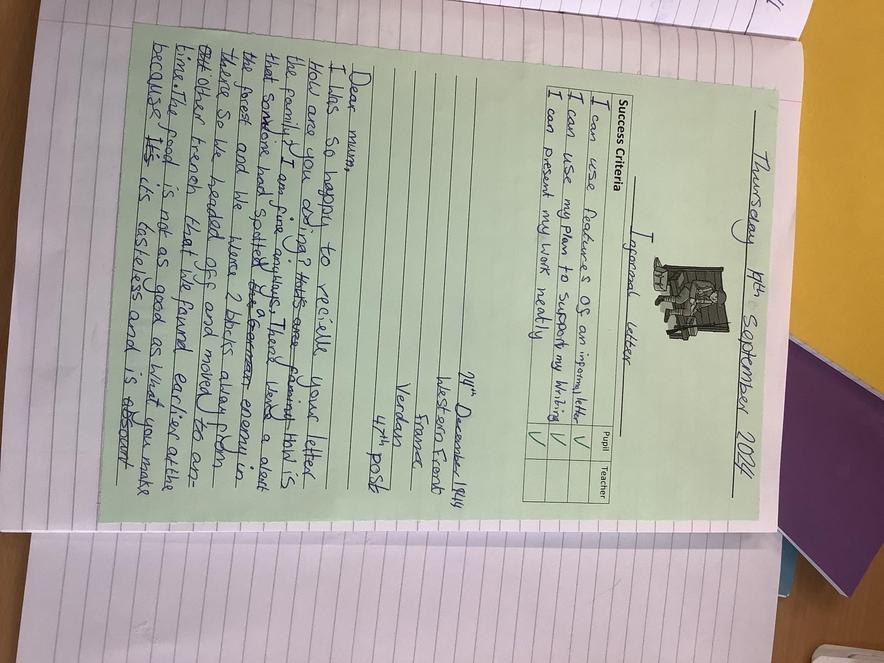 Thursday 19th September 2024
Informal letter
Success Criteria
Pupil
Teacher
I can use features of an informal letter
I can use my plan to support my writing
I can present my work neatly
24th December 1914
Western Front
France
Verdan
47th post
Dear mum,
I was so happy to recieve your letter
How are you doing? How is
the family? I am fine anyways. There were a alert
that someone had spotted a enemy in
the forest and we were 2 blocks away from
there so we headed off and moved to an-
other trench that we found earlier at the
time. The food is not as good as what you make
because its tasteless and is